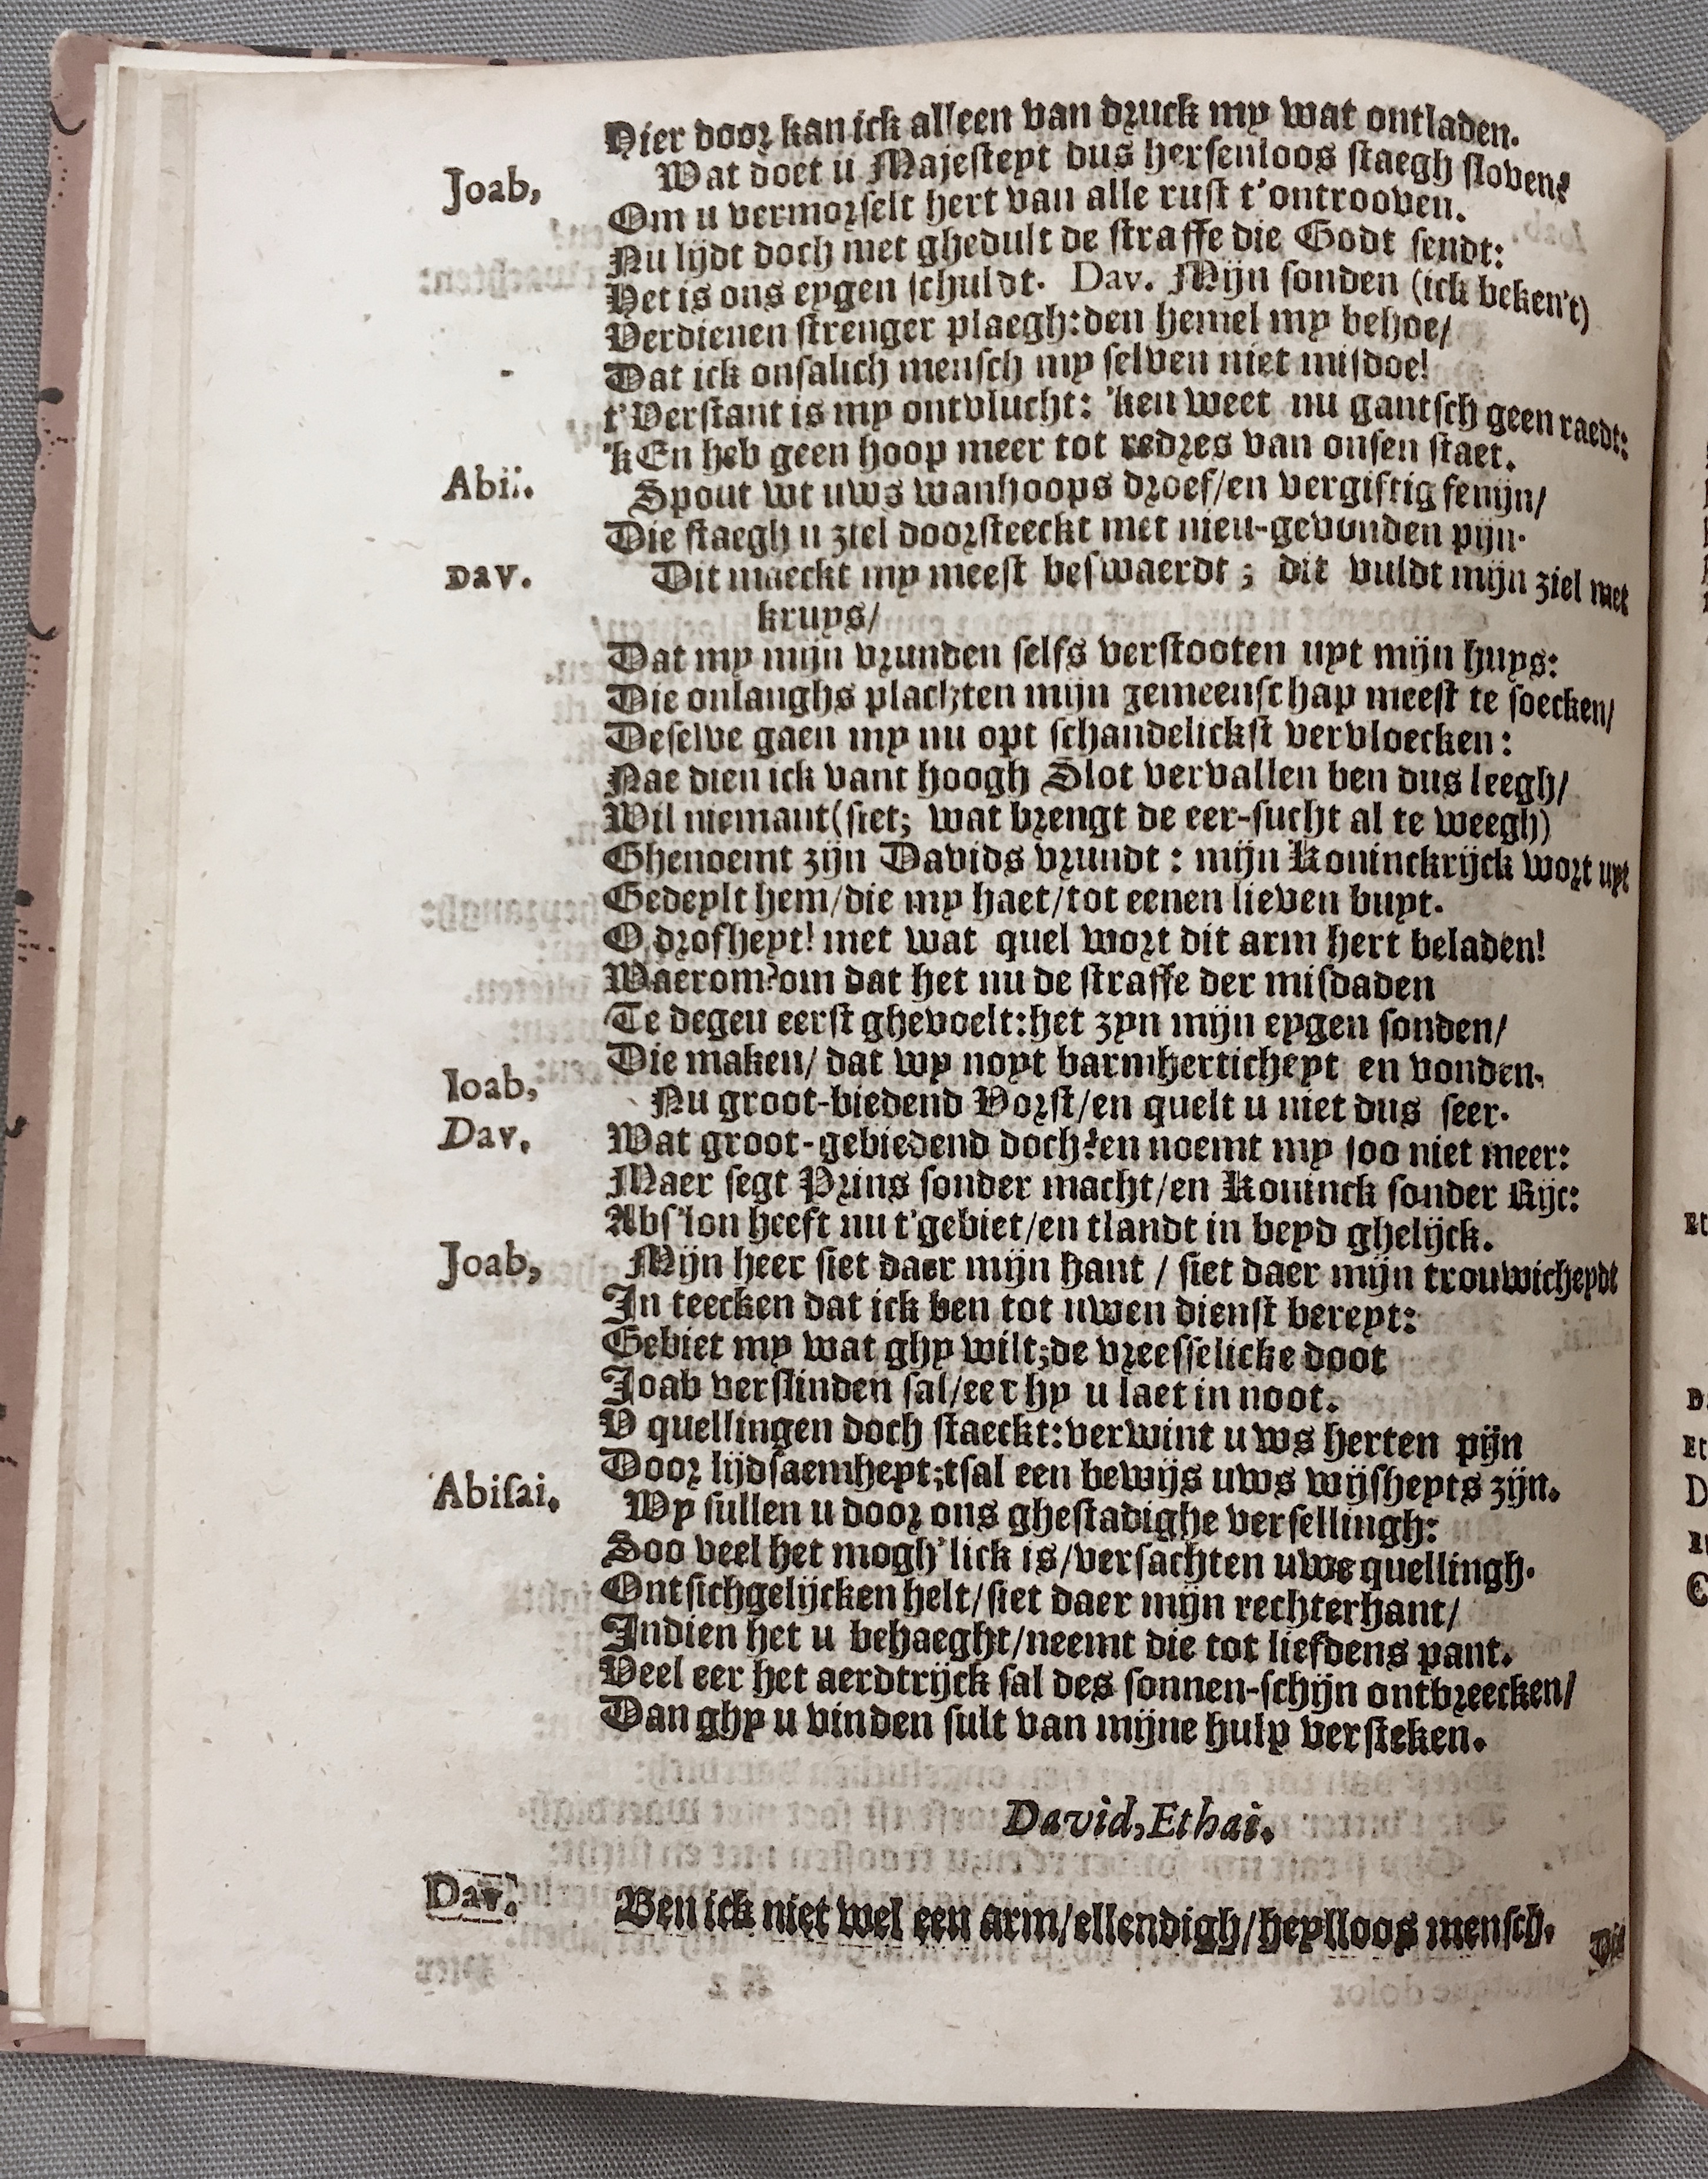 Hier door kan ick alleen van druck my wat ontladen.
Joab, Wat doet u Majesteyt dus hersenloos staegh sloven?
Om u vermorselt hert van alle rust t'ontrooven.
Nu lijdt doch met ghedult de straffe die Godt sendt:
Het is ons eygen schuldt. Dav. Mijn sonden (ick beken't)
Verdienen strenger plaegh:den hemel my behoe/
Dat ick onsalich mensch my selven niet misdoe!
t'Verstant is my ontvlucht: 'ken weet nu gantsch geen raedt:
'kEn heb geen hoop meer tot redres van onsen staet.
Abis. Spout wt uws wanhoops droef/en vergiftig fenijn/
Die staegh u ziel doorsteeckt met nieu-gevonden pijn.
Dav. Dit maeckt my meest beswaerdt ; dit vuldt mijn ziel met
kruys/
Dat my mijn vrunden selfs verstooten uyt mijn huys:
Die onlanghs plachten mijn gemeenschap meest te soecken/
Deselve gaen my nu opt schandelickst vervloecken:
Nae dien ick vant hoogh Slot vervallen ben dus leegh/
Wil niemant(siet; wat brengt de eer-sucht al te weegh)
Ghenoemt zijn Davids vrundt : mijn Koninckrijck wort uyt
Gedeylt hem/die my haet/tot eenen lieven buyt.
O drofheyt! met wat quel wort dit arm hert beladen!
Waerom?om dat het nu de straffe der misdaden
Te degen eerst ghevoelt:het zyn mijn eygen sonden/
Die maken/ dat wy noyt barmhertichept en vonden.
Ioab, Nu groot-biedend Vorst/en quelt u niet dus seer.
Dav. Wat groot-gebiedend doch?en noemt my soo niet meer:
Maer segt Prins sonder macht/en Koninck sonder Rijc:
Abs'lon heeft nu t'gebiet/en tlandt in beyd ghelijck.
Joab, Mijn heer siet daer mijn hant / siet daer mijn trouwicheydt
In teecken dat ick ben tot uwen dienst bereyt:
Gebiet my wat ghy wilt;de vreesselicke doot
Joab verslinden sal/eer hy u laet in noot.
V quellingen doch staeckt:verwint uws herten pijn
Door lijdsaemheyt;tsal een bewijs uws wijsheyts zijn.
Abisai. Wy sullen u door ons ghestadighe versellingh:
Soo veel het mogh'lick is/versachten uws quellingh.
Ontsichgelijcken helt/siet daer mijn rechterhant/
Indien het u behaeght/neemt die tot liefdens pant.
Veel eer het aerdtrijck sal des sonnen-schijn ontbreecken/
Dan ghy u vinden sult van mijne hulp versteken.
David, Ethai.
Dav. Ben ick niet wel een arm/ellendigh/heylloos mensch.